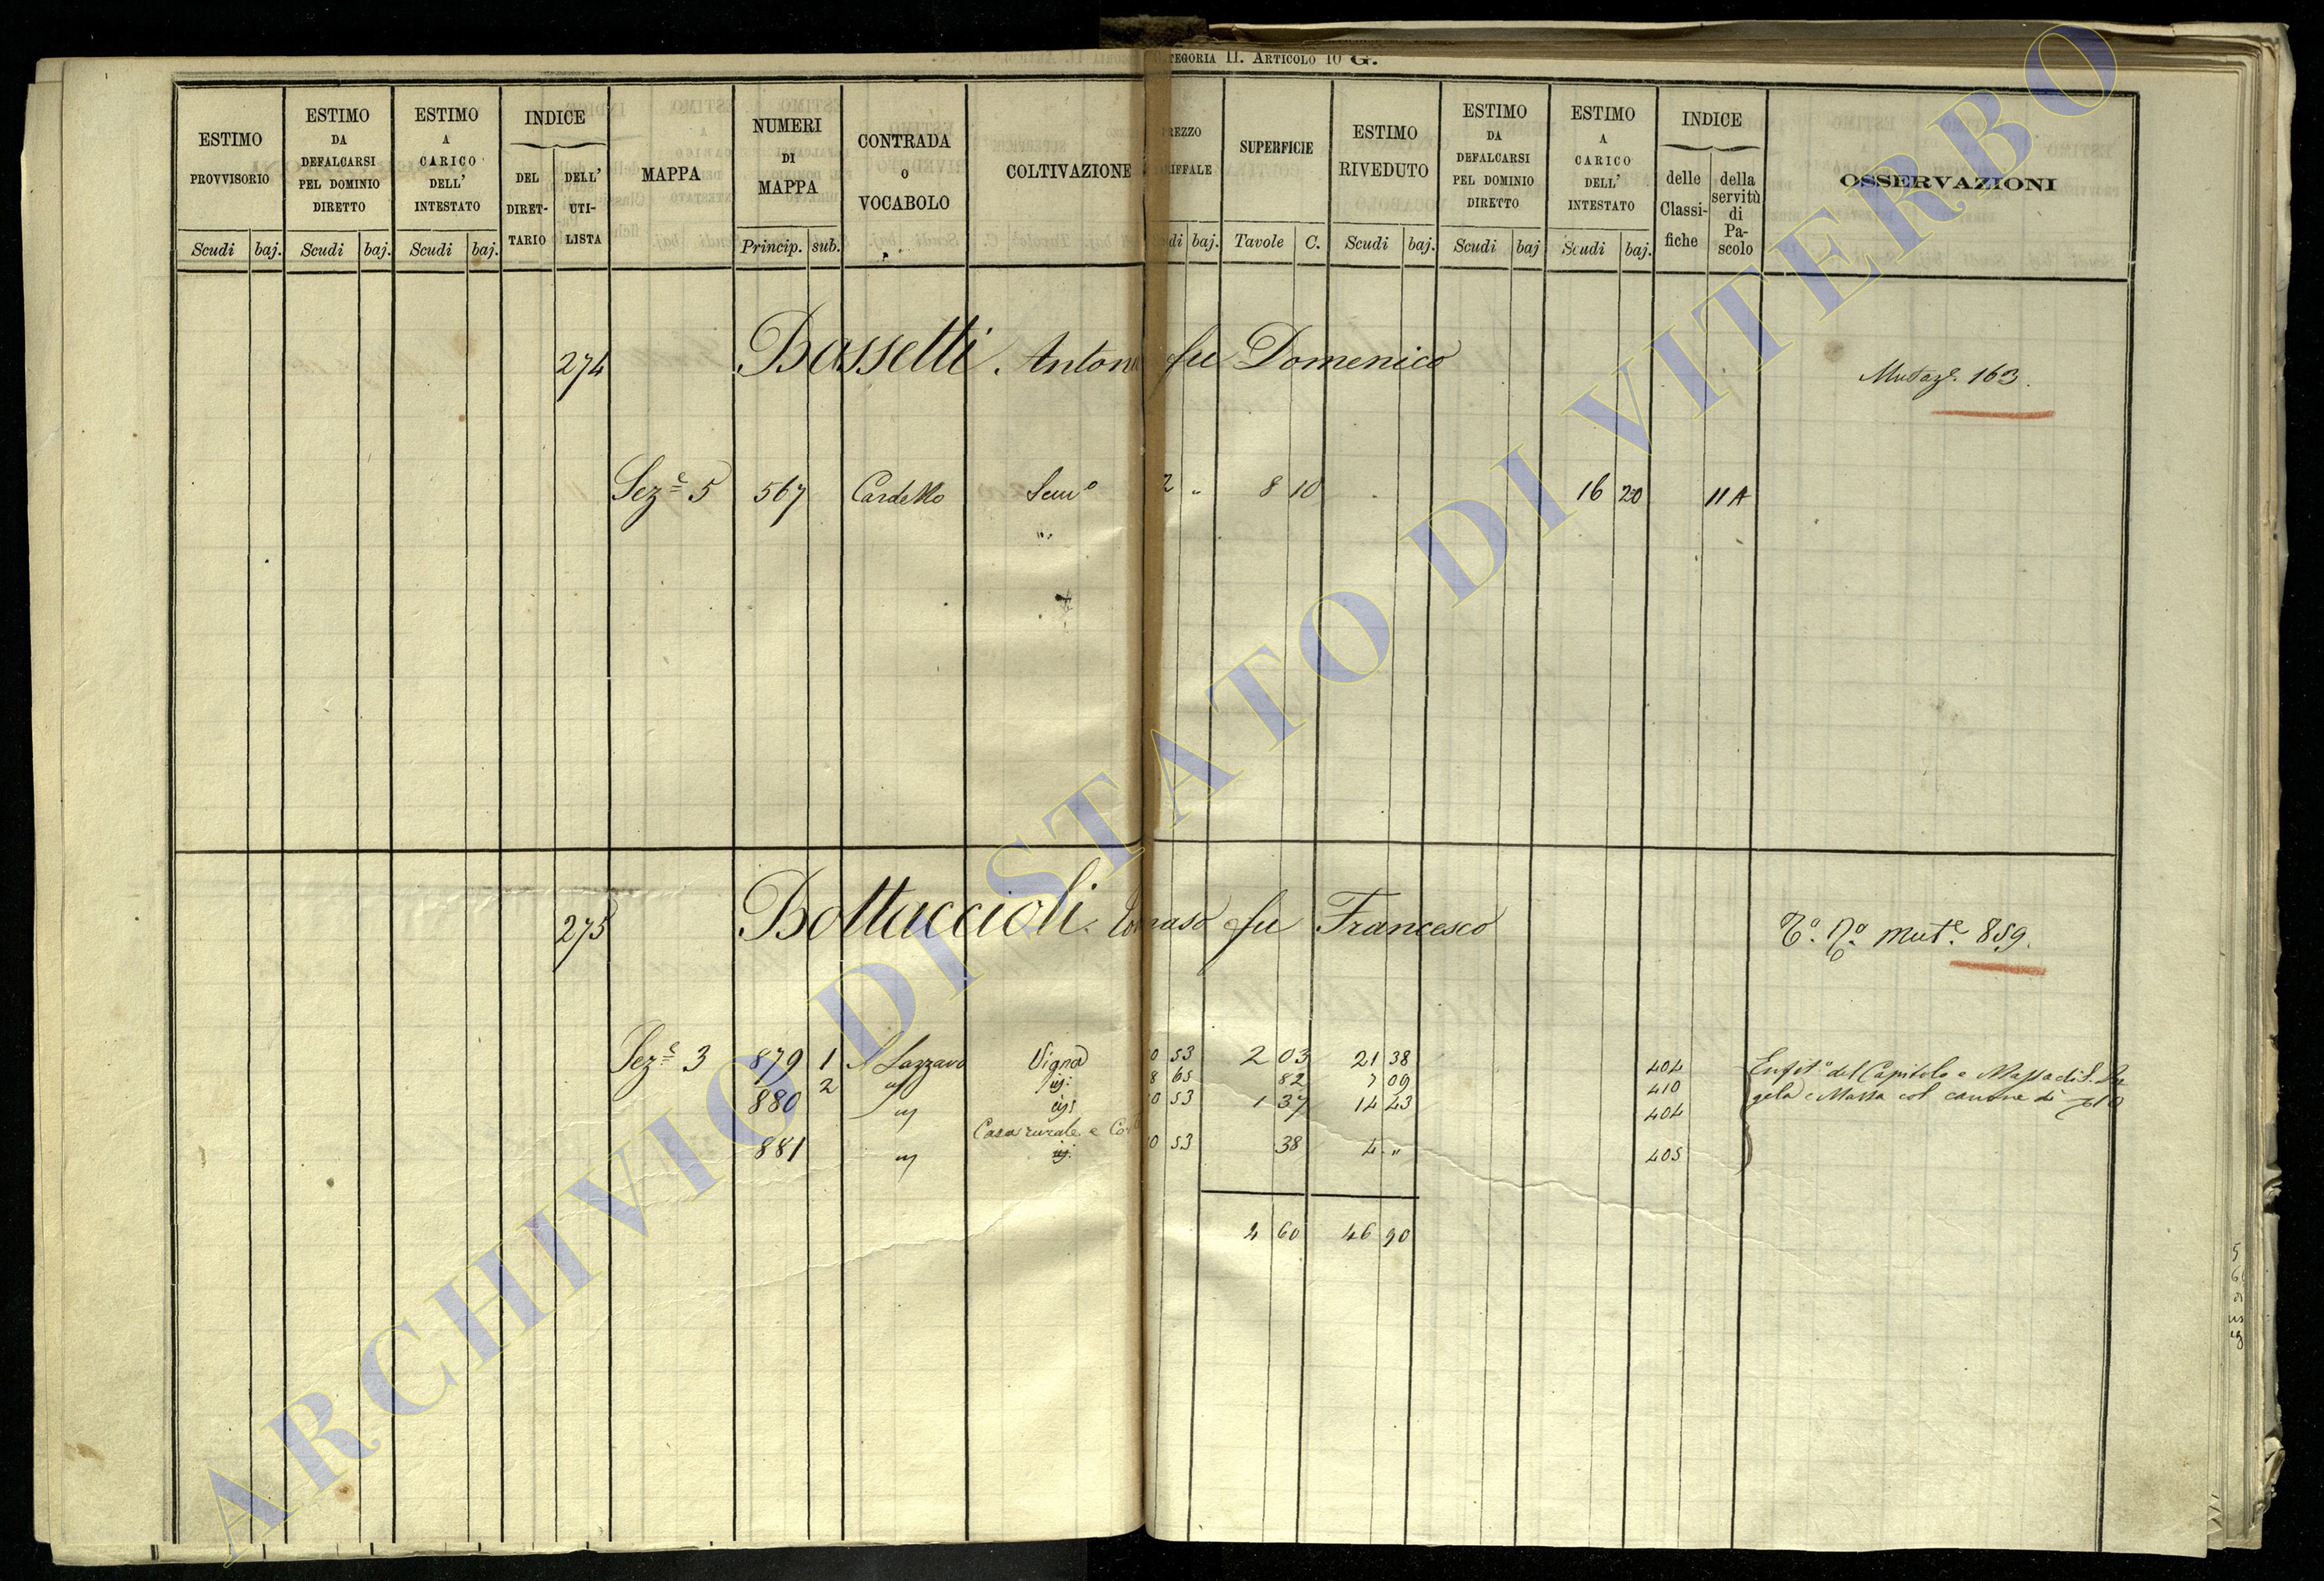 CATEGORIA II. ARTICOLO 10 G.
ESTIMO PROVVISORIO
Scudi baj.
ESTIMO DA DEFALCARSI PEL DOMINIO DIRETTO
Scudi baj.
ESTIMO A CARICO DELL' INTESTATO
Scudi baj.
INDICE
DEL DIRET-TARIO
DELL' UTI-LISTA
MAPPA
NUMERI DI MAPPA
Princip. sub.
CONTRADA O VOCABOLO
COLTIVAZIONE
REZZO RIFFALE
di baj.
SUPERFICIE
Tavole C.
ESTIMO RIVEDUTO
Scudi baj.
ESTIMO DA DEFALCARSI PEL DOMINIO DIRETTO
Scudi baj
ESTIMO A CARICO DELL' INTESTATO
Scudi baj.
INDICE
delle Classi-fiche
della servitù di Pa-scolo
OSSERVAZIONI
274 Bassetti Anton fu Domenico Mutaz.e 163.
Sez.e 5 567 Cardello Sem.o 2 " 8 10 16 20 11 A
275 Bottaccioli Tomaso fu Francesco T.o N.o mut.e 859.
Sez.e 3 879 1 S Lazzaro Vigna 0 53 2 03 21 38 404 Enfit.a del Capitolo e Massa di S. An
2 " 8 65 82 7 09 410 gela e Massa col canone di
880 " 0 53 1 37 14 43 404
Casa rurale e Cor
881 " 0 53 38 4 " 405
4 60 46 90
ARCHIVIO DI STATO DI VITERBO